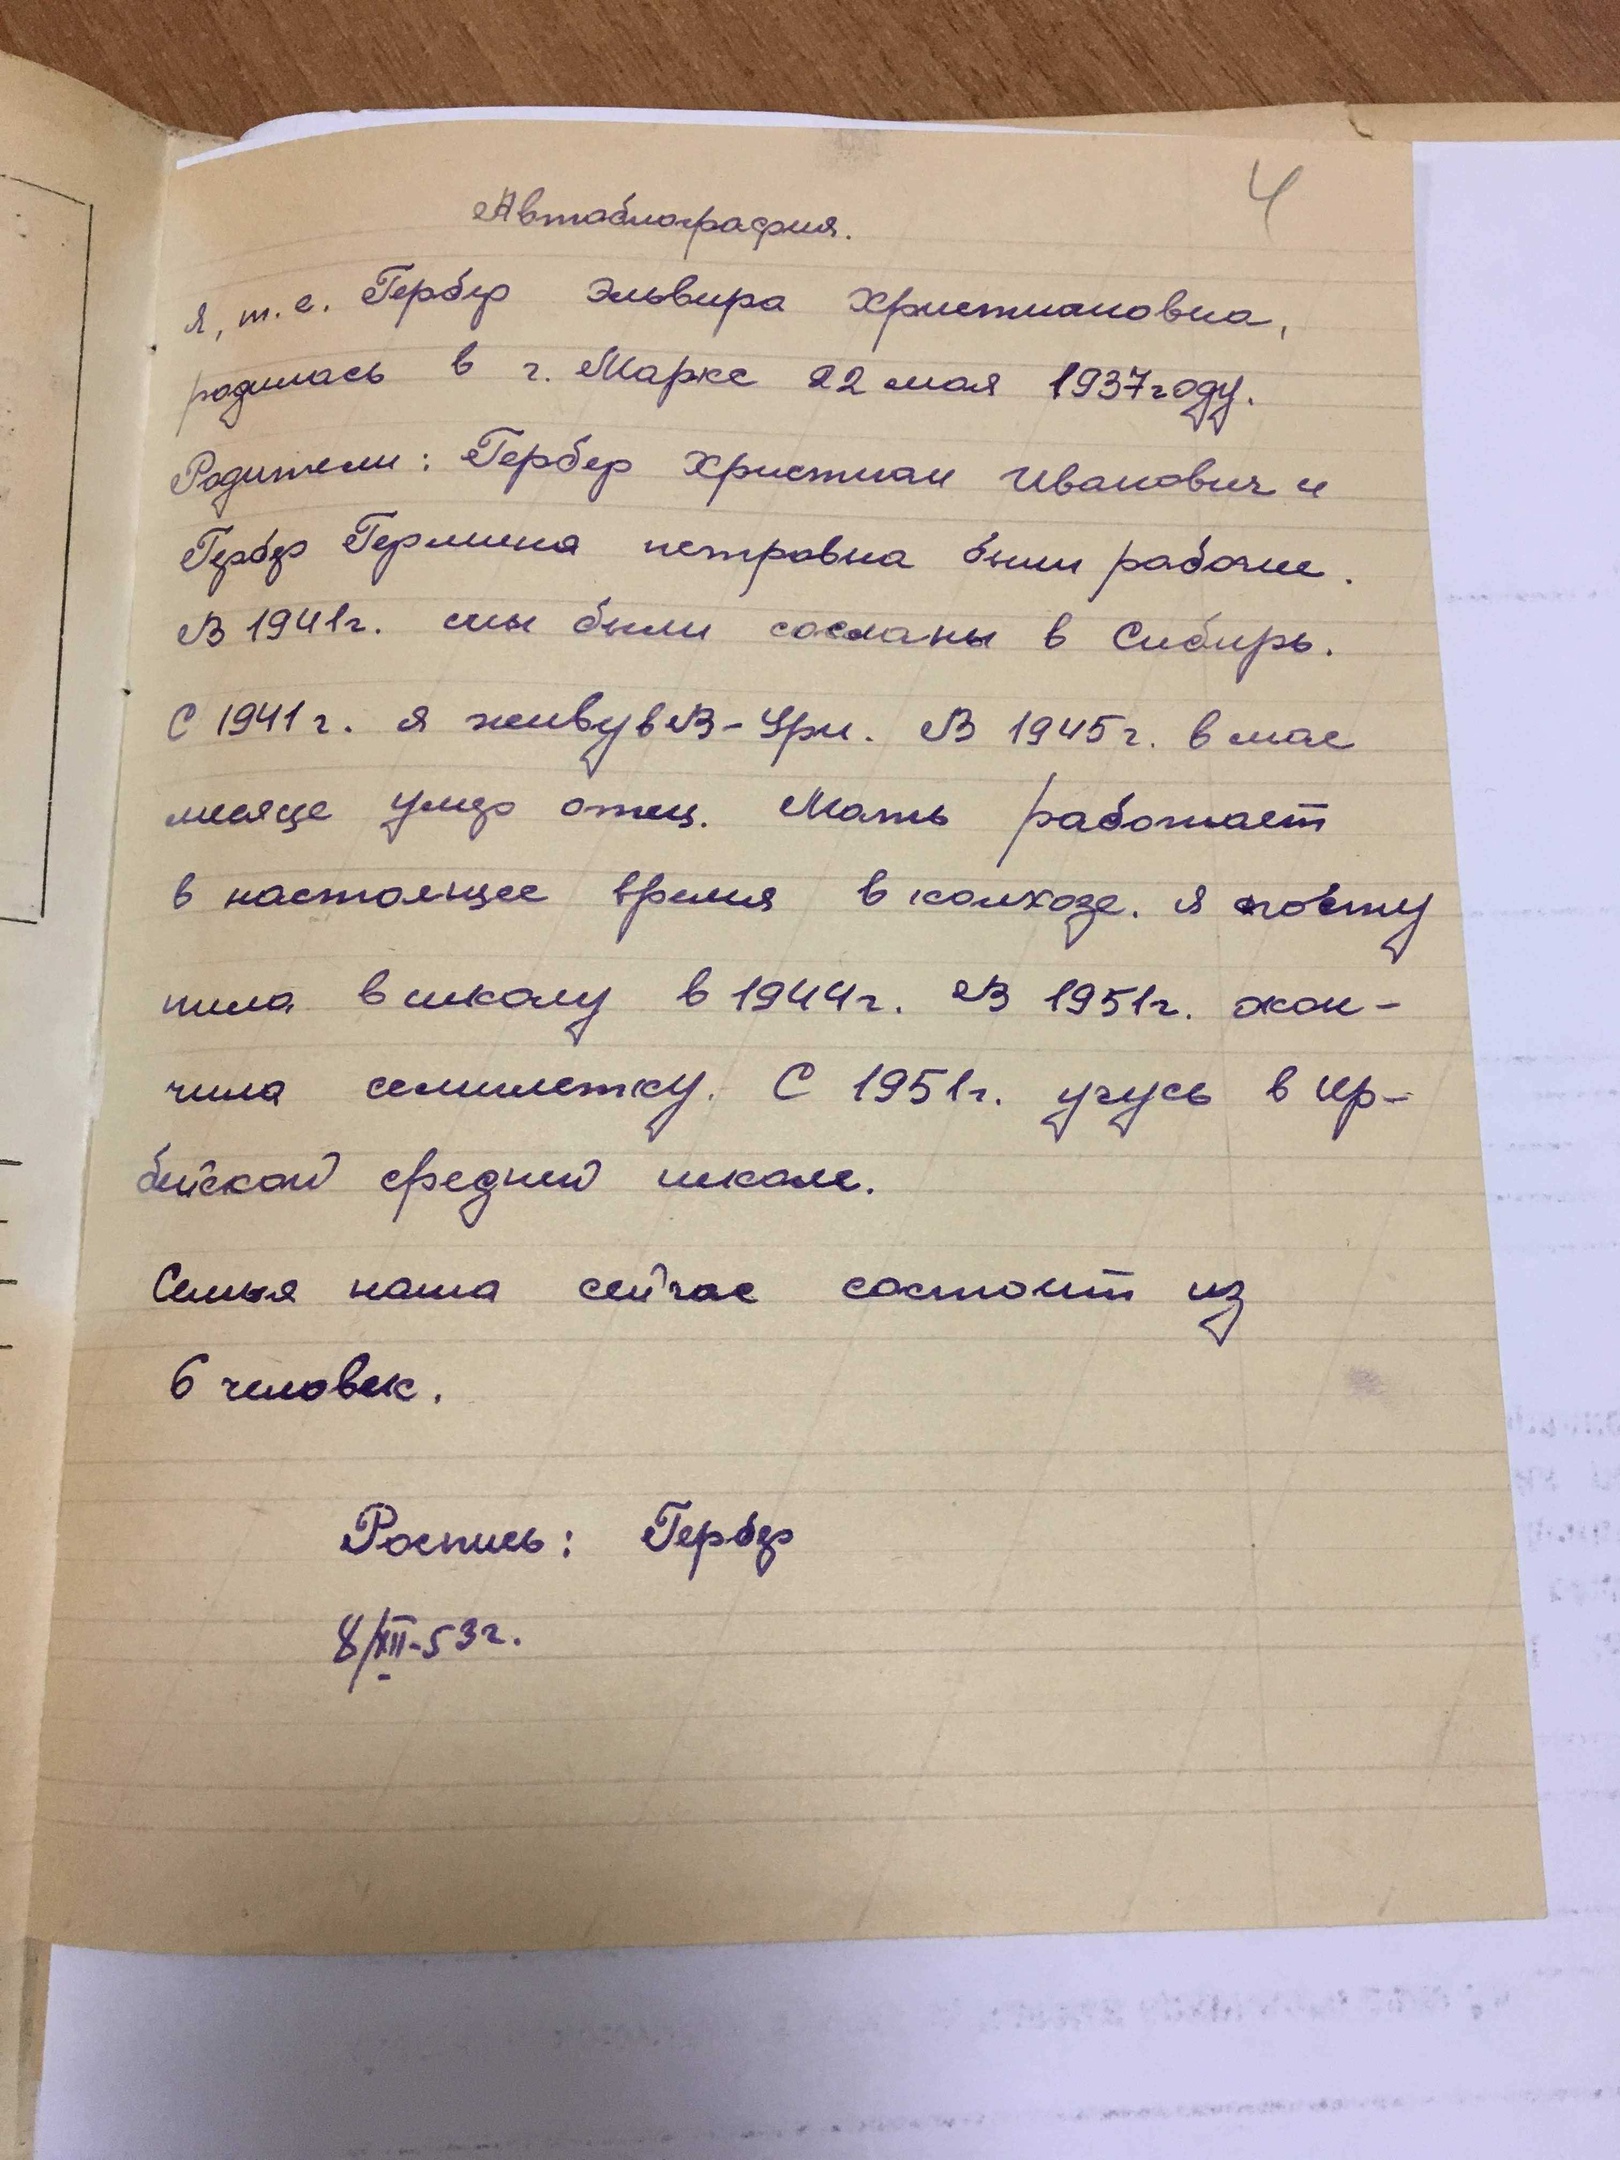 4
Автобиография.
Я, т. е. Гербер Эльвира Христиановна,
родилась в г. Марксе 22 мая 1937 году.
Родители: Гербер Христиан Иванович и
Гербер Гермина петровна были рабочие.
В 1941г. мы были сосланы в Сибирь.
С 1941г. я живу в В-Ури. В 1945г. в мае
месяце умер отец. Мать работает
в настоящее время в колхозе. Я посту
пила в школу в 1944г. В 1951г. окон-
чила семилетку. С 1951г. учусь в Ир-
бейской средней школе.
Семья наша сейчас состоит из
6 человек.
Роспись: Гербер
8/XII-53г.